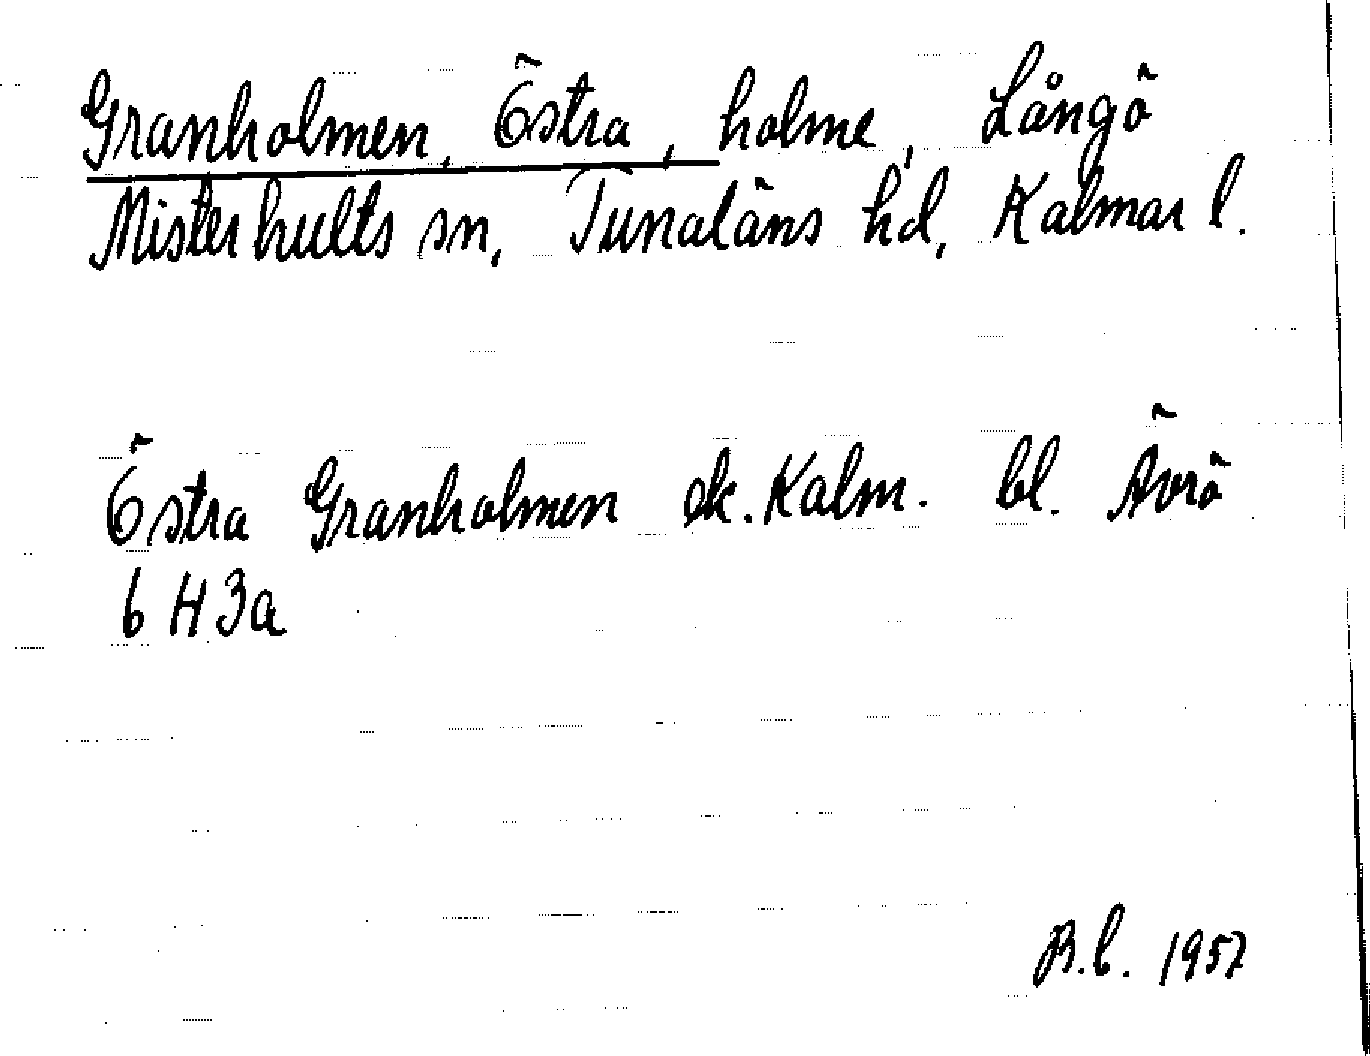 Granholmen, Östra, holme, Långö
Misterhults sn, Tunaläns hd, Kalmar l.
Östra Granholmen ek. Kalm. bl. Ävrö
6 H 3a
B.C. 1957